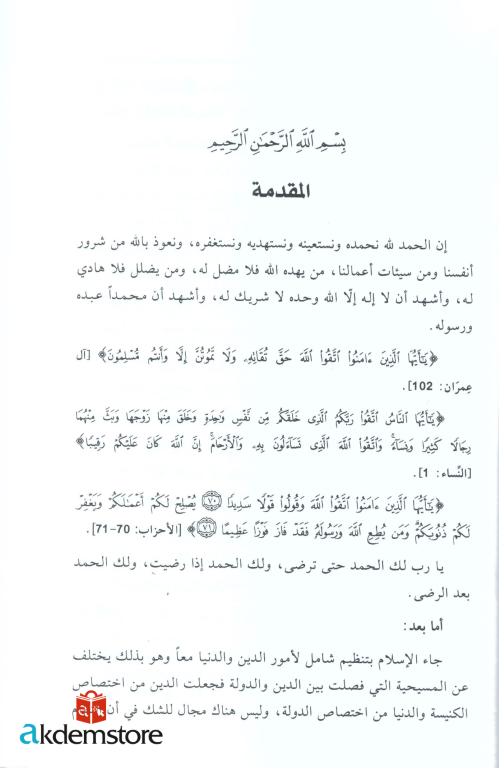 بِسْمِ اللَّهِ الرَّحْمَٰنِ الرَّحِيمِ
المقدمة
إن الحمد لله نحمده ونستعينه ونستهديه ونستغفره، ونعوذ بالله من شرور
أنفسنا ومن سيئات أعمالنا، من يهده الله فلا مضل له، ومن يضلل فلا هادي
له، وأشهد أن لا إله إلّا الله وحده لا شريك له، وأشهد أن محمداً عبده
ورسوله.
﴿يَٰٓأَيُّهَا ٱلَّذِينَ ءَامَنُوا۟ ٱتَّقُوا۟ ٱللَّهَ حَقَّ تُقَاتِهِۦ وَلَا تَمُوتُنَّ إِلَّا وَأَنتُم مُّسْلِمُونَ﴾ [آل
عِمرَان: 102].
﴿يَٰٓأَيُّهَا ٱلنَّاسُ ٱتَّقُوا۟ رَبَّكُمُ ٱلَّذِى خَلَقَكُم مِّن نَّفْسٍ وَٰحِدَةٍ وَخَلَقَ مِنْهَا زَوْجَهَا وَبَثَّ مِنْهُمَا
رِجَالًا كَثِيرًا وَنِسَآءً ۚ وَٱتَّقُوا۟ ٱللَّهَ ٱلَّذِى تَسَآءَلُونَ بِهِۦ وَٱلْأَرْحَامَ ۚ إِنَّ ٱللَّهَ كَانَ عَلَيْكُمْ رَقِيبًا﴾
[النِّساء: 1].
﴿يَٰٓأَيُّهَا ٱلَّذِينَ ءَامَنُوا۟ ٱتَّقُوا۟ ٱللَّهَ وَقُولُوا۟ قَوْلًا سَدِيدًا ۝٧٠ يُصْلِحْ لَكُمْ أَعْمَٰلَكُمْ وَيَغْفِرْ
لَكُمْ ذُنُوبَكُمْ ۗ وَمَن يُطِعِ ٱللَّهَ وَرَسُولَهُۥ فَقَدْ فَازَ فَوْزًا عَظِيمًا ۝٧١﴾ [الأحزَاب: 70-71].
يا رب لك الحمد حتى ترضى، ولك الحمد إذا رضيت، ولك الحمد
بعد الرضى.
أما بعد:
جاء الإسلام بتنظيم شامل لأمور الدين والدنيا معاً وهو بذلك يختلف
عن المسيحية التي فصلت بين الدين والدولة فجعلت الدين من اختصاص
الكنيسة والدنيا من اختصاص الدولة، وليس هناك مجال للشك في أن
akdemstore